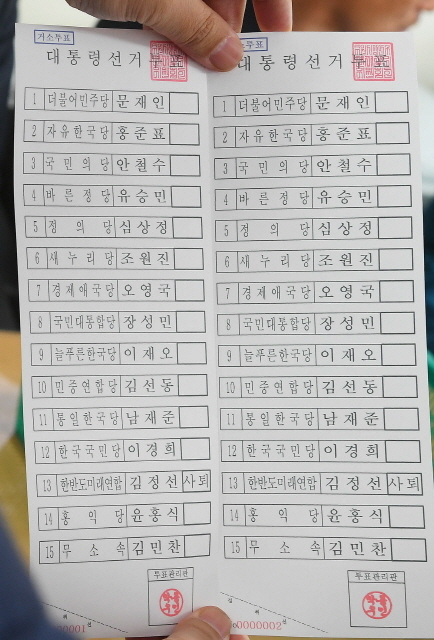 거소투표
대통령선거투표
1 더불어민주당 문재인
2 자유한국당 홍준표
3 국민의당 안철수
4 바른정당 유승민
5 정의당 심상정
6 새누리당 조원진
7 경제애국당 오영국
8 국민대통합당 장성민
9 늘푸른한국당 이재오
10 민중연합당 김선동
11 통일한국당 남재준
12 한국국민당 이경희
13 한반도미래연합 김정선 사퇴
14 홍익당 윤홍식
15 무소속 김민찬
투표관리관
0000001
거소투표
대통령선거투표
1 더불어민주당 문재인
2 자유한국당 홍준표
3 국민의당 안철수
4 바른정당 유승민
5 정의당 심상정
6 새누리당 조원진
7 경제애국당 오영국
8 국민대통합당 장성민
9 늘푸른한국당 이재오
10 민중연합당 김선동
11 통일한국당 남재준
12 한국국민당 이경희
13 한반도미래연합 김정선 사퇴
14 홍익당 윤홍식
15 무소속 김민찬
투표관리관
No 0000002